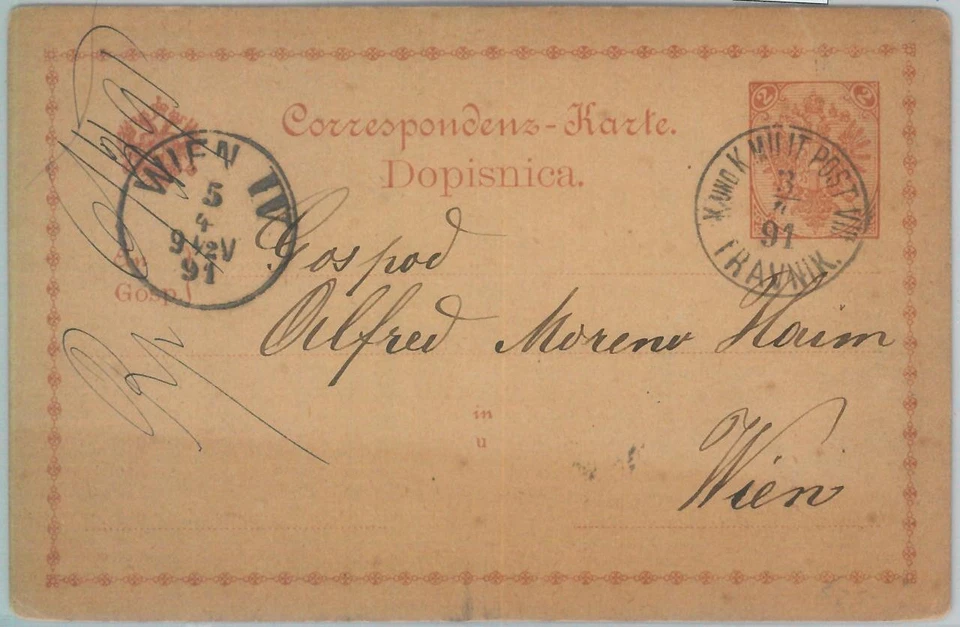 Correspondenz-Karte.
Dopisnica.
2 2
WIEN IV
5
4
9 1/2 V
91
K. UND K. MILIT. POST VIII
3/4
91
TRAVNIK.
Gosp.
Gospod
Alfred Moreno Haim
in
u
Wien